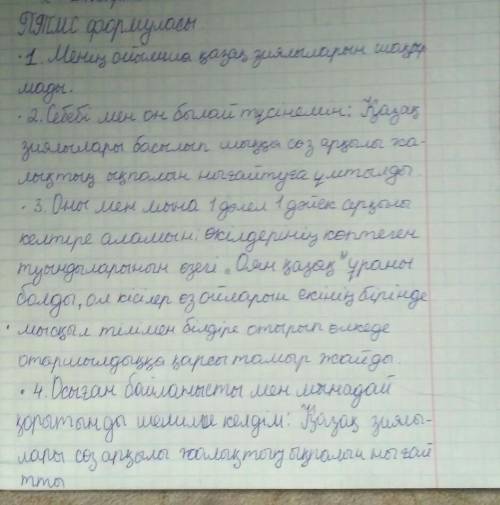 ПТМС формуласы
· 1. Менің ойымша қазақ зиялыларын шақыр
мады.
· 2. Себебі мен он былай түсінемін: Қазақ
зиялылары басылып шыққа сөз арқылы ха-
лықтың ықпалын нығайтуға ұмтылды
· 3. Оны мен мына 1 дәлел 1 дәйек арқылы
келтіре аламын. Өкілдерінің көптеген
туындыларынын өзегі „Оян қазақ" ұраны
болды, ол кісілер өз ойларын екінің бірінде
· мысқыл тілімен білдіре отырып өлкеде
отаршылдыққа қарсы тамыр жайды.
· 4. Осыған байланысты мен мынадай
қорытынды шешімге келдім: Қазақ зиялы-
лары сөз арқылы халықтың ықпалын нығай
тты